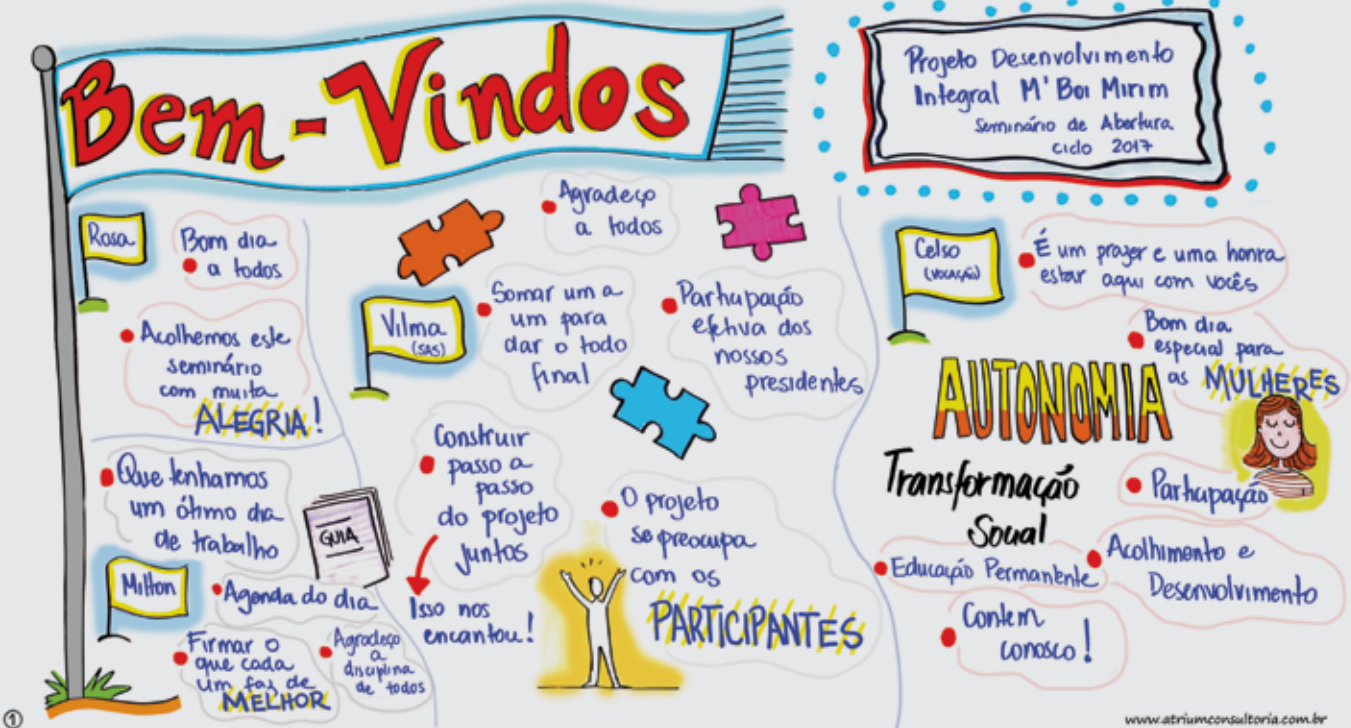 Bem-Vindos
Projeto Desenvolvimento
Integral M'Boi Mirim
Seminário de Abertura
ciclo 2017
Rosa
Bom dia
a todos
Acolhemos este
seminário
com muita
ALEGRIA!
Que tenhamos
um ótimo dia
de trabalho
GUIA
Milton
Agenda do dia
Firmar o
que cada
um faz de
MELHOR
Agradeço
a
disciplina
de todos
Agradeço
a todos
Vilma
(SAS)
Somar um a
um para
dar o todo
final
Participação
efetiva dos
nossos
presidentes
Construir
passo a
passo
do projeto
juntos
Isso nos
encantou!
O projeto
se preocupa
com os
PARTICIPANTES
Celso
(VOCAÇÃO)
É um prazer e uma honra
estar aqui com vocês
Bom dia
especial para
as MULHERES
AUTONOMIA
Transformação
Social
Participação
Educação Permanente
Acolhimento e
Desenvolvimento
Contem
conosco!
1
www.atriumconsultoria.com.br